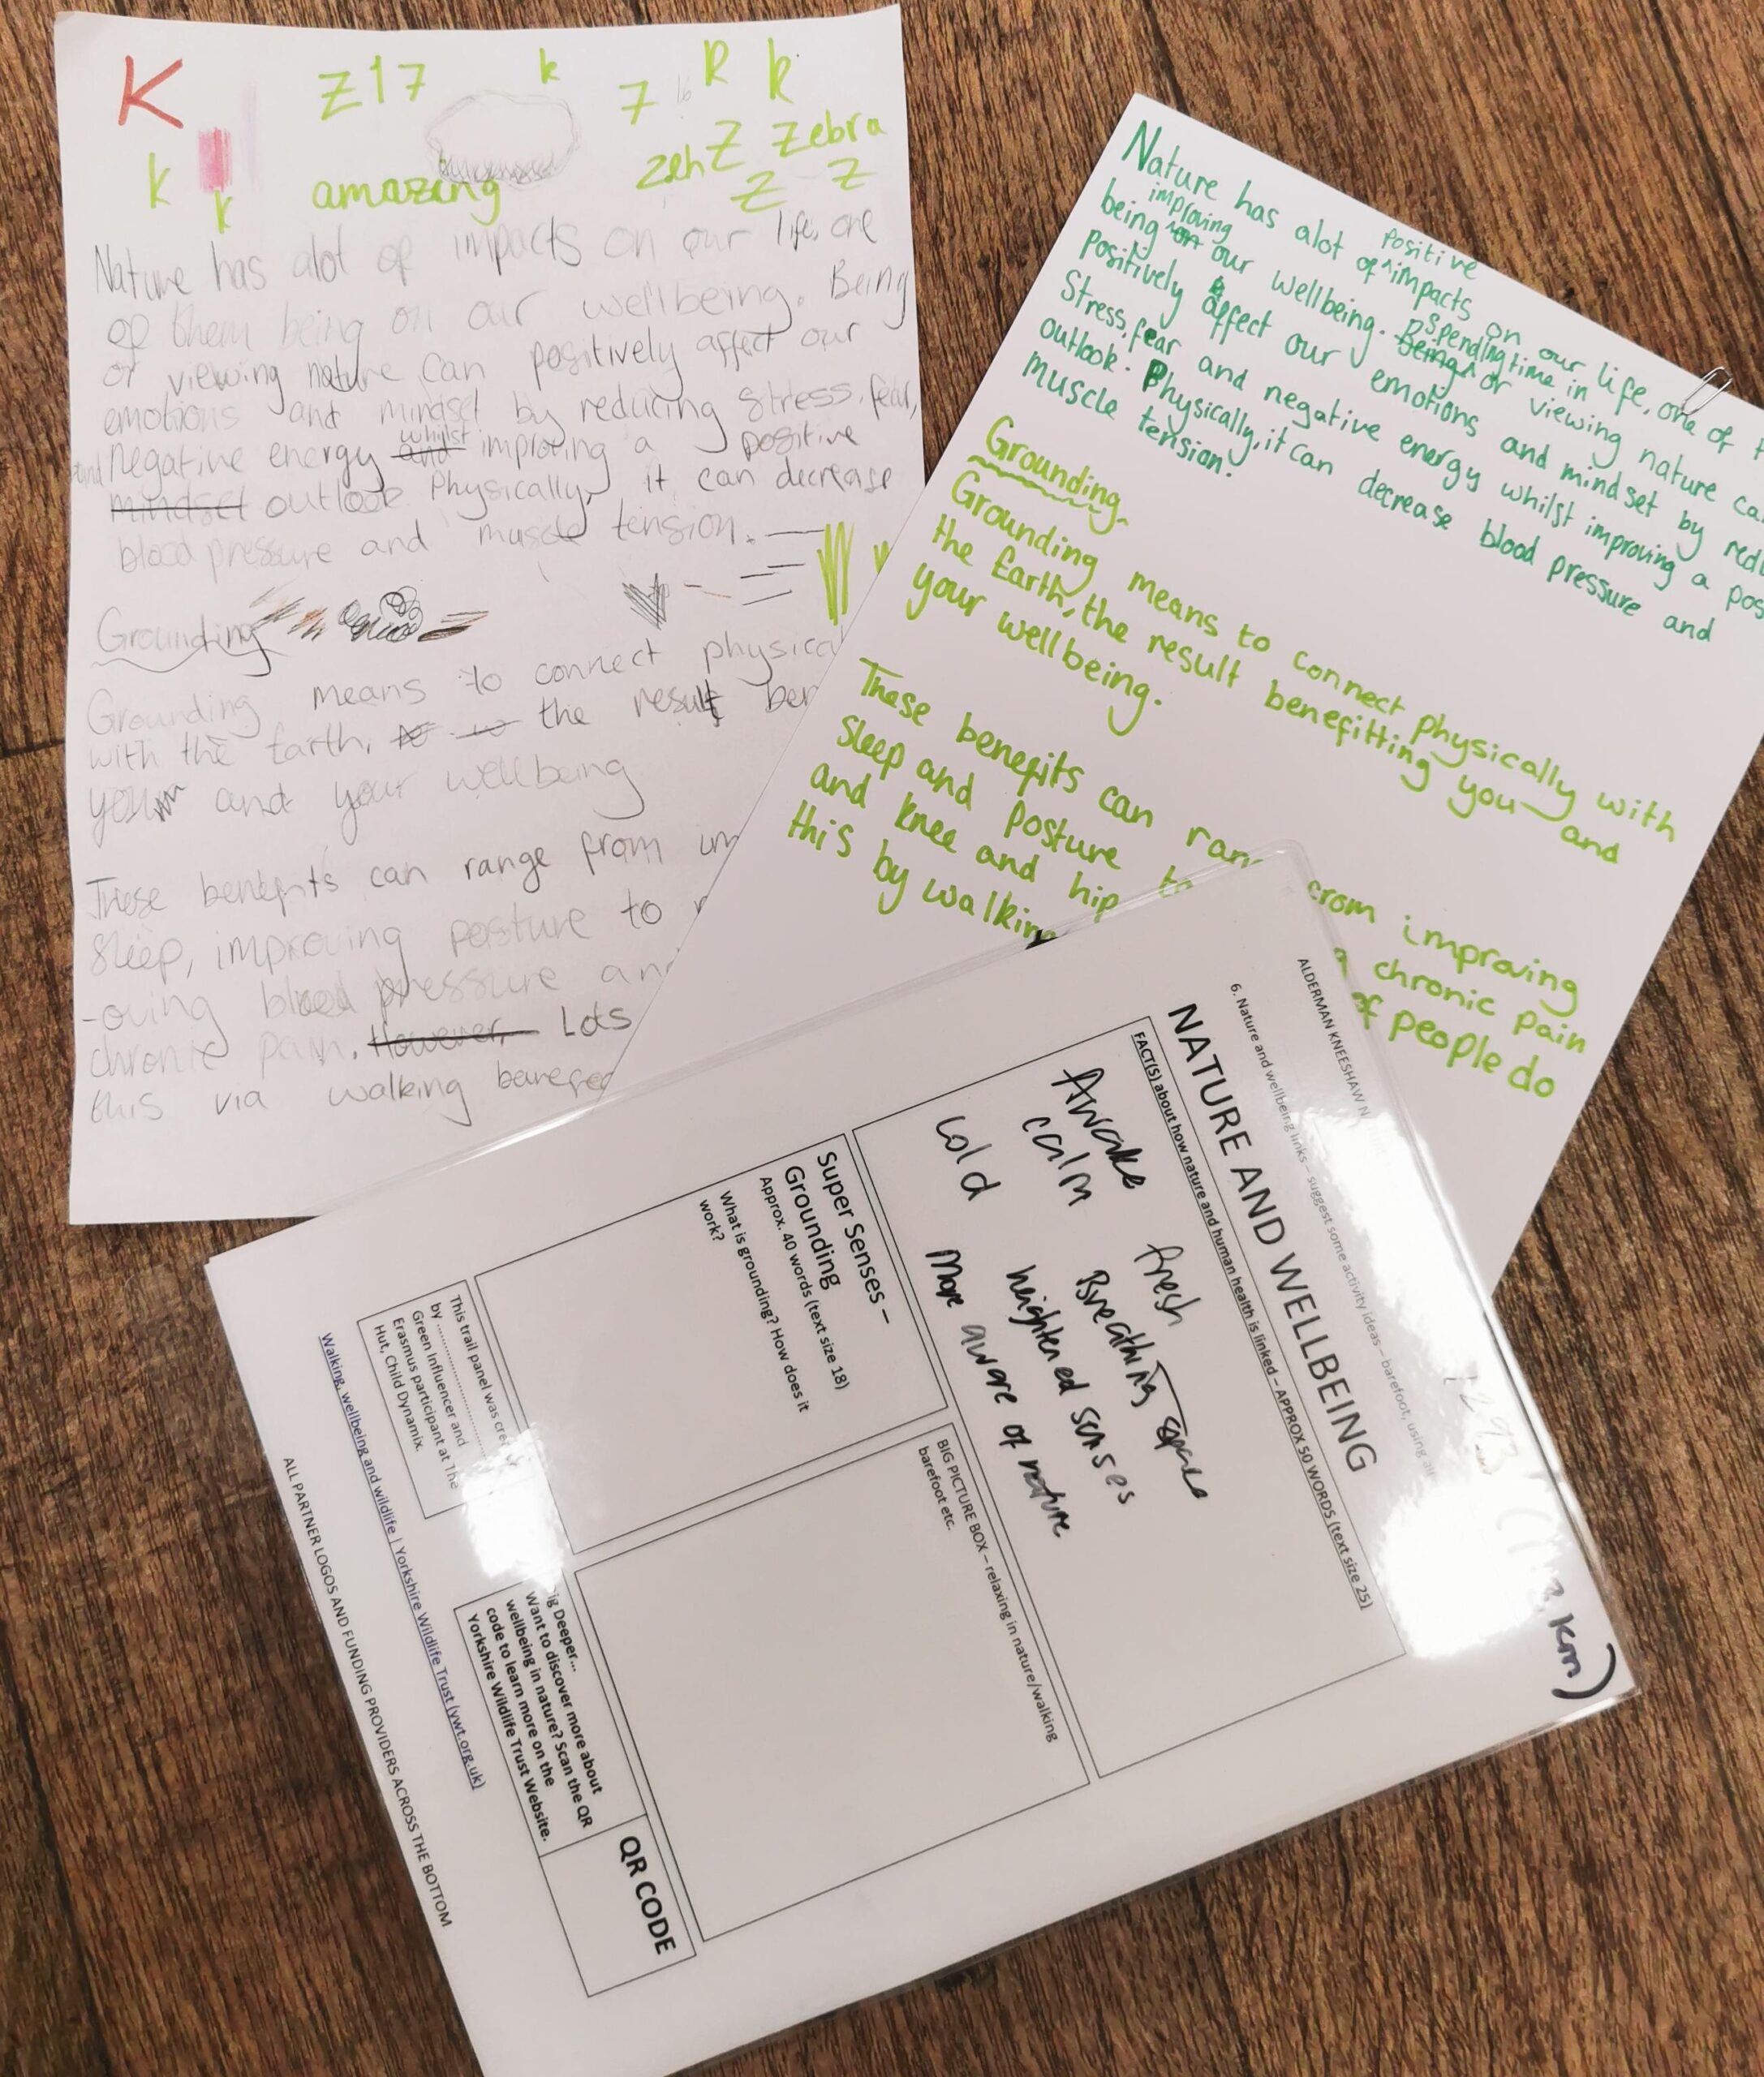 K
Z17
k
7
16
R
k
k
k
amazing
zeh
Z
Zebra
Z
Z
Nature has alot of impacts on our life, one
of them being on our wellbeing. Being
or viewing nature can positively affect our
emotions and mindset by reducing stress, fear,
and negative energy and whilst improving a positive
mindset outlook Physically, it can decrease
blood pressure and muscle tension.
Grounding
Grounding means to connect physica
with the Earth, the result ben
you and your wellbeing
These benefits can range from im
sleep, improving posture to
-oving blood pressure an
chronic pain. However, Lots
this via walking barefoo
Nature has alot of positive impacts on our life, one of
being on improving our wellbeing. Being Spending time in or viewing nature ca
positively affect our emotions and mindset by redu
Stress, fear and negative energy whilst improving a pos
outlook. Physically, it can decrease blood pressure and
muscle tension.
Grounding
Grounding means to connect physically with
the Earth, the result benefitting you and
your wellbeing.
These benefits can ran from improving
Sleep and posture to chronic pain
and knee and hip of people do
this by walking
ALDERMAN KNEESHAW N
6. Nature and wellbeing links – suggest some activity ideas – barefoot, using all
km)
NATURE AND WELLBEING
FACT(S) about how nature and human health is linked – APPROX 50 WORDS (text size 25)
Awake
fresh
calm
Breathing space
cold
heightened senses
more aware of nature
Super Senses –
Grounding
Approx. 40 words (text size 18)
What is grounding? How does it
work?
BIG PICTURE BOX – relaxing in nature/walking
barefoot etc.
This trail panel was cre
by ....................
Green Influencer and
Erasmus participant at The
Hut, Child Dynamix.
ig Deeper...
Want to discover more about
wellbeing in nature? Scan the QR
code to learn more on the
Yorkshire Wildlife Trust Website.
QR CODE
Walking, wellbeing and wildlife | Yorkshire Wildlife Trust (ywt.org.uk)
ALL PARTNER LOGOS AND FUNDING PROVIDERS ACROSS THE BOTTOM